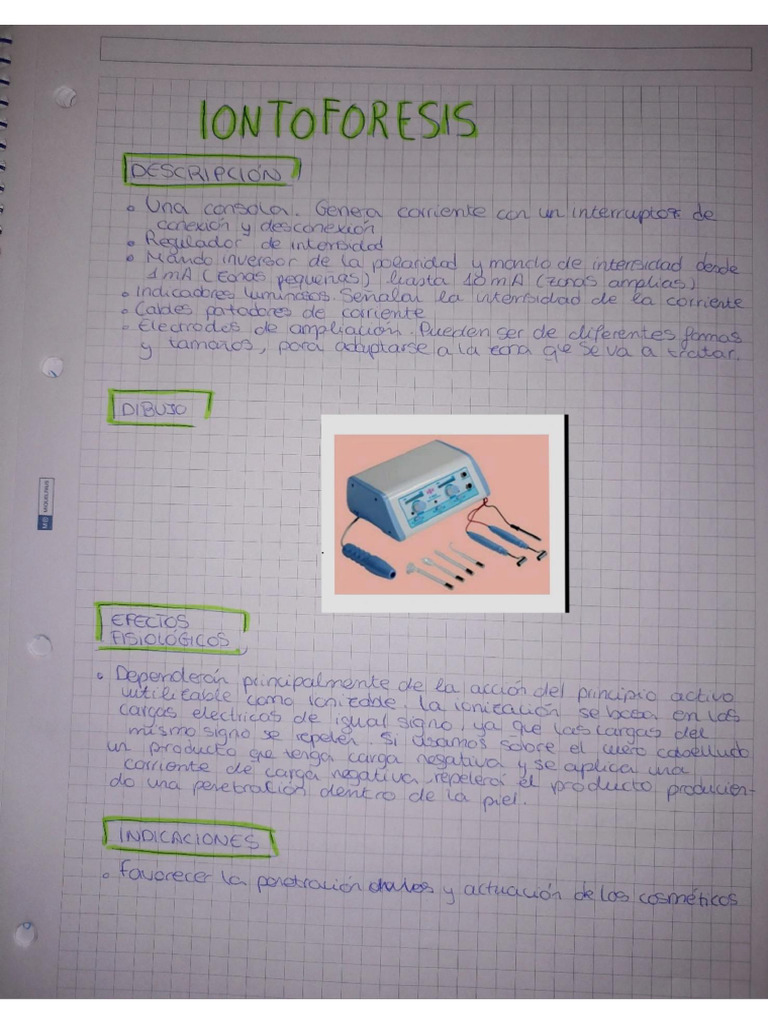 IONTOFORESIS
DESCRIPCIÓN
• Una consola. Genera corriente con un interruptor de
conexión y desconexión
• Regulador de intensidad
• Mando inversor de la polaridad y mando de intensidad desde
1mA (zonas pequeñas) hasta 10mA (zonas amplias)
• Indicadores luminosos. Señalan la intensidad de la corriente
• Cables portadores de corriente
• Electrodos de ampliación. Pueden ser de diferentes formas
y tamaños, para adaptarse a la zona que se va a tratar.
DIBUJO
MIQUELRIUS
EFECTOS
FISIOLÓGICOS
• Dependerán principalmente de la acción del principio activo
utilizable como ionizable. La ionización se basa en las
cargas electricas de igual signo, ya que las cargas del
mismo signo se repelen. Si usamos sobre el cuero cabelludo
un producto que tenga carga negativa y se aplica una
corriente de carga negativa, repelerá el producto producien-
do una penetración dentro de la piel.
INDICACIONES
• Favorecer la penetración y actuación de los cosméticos